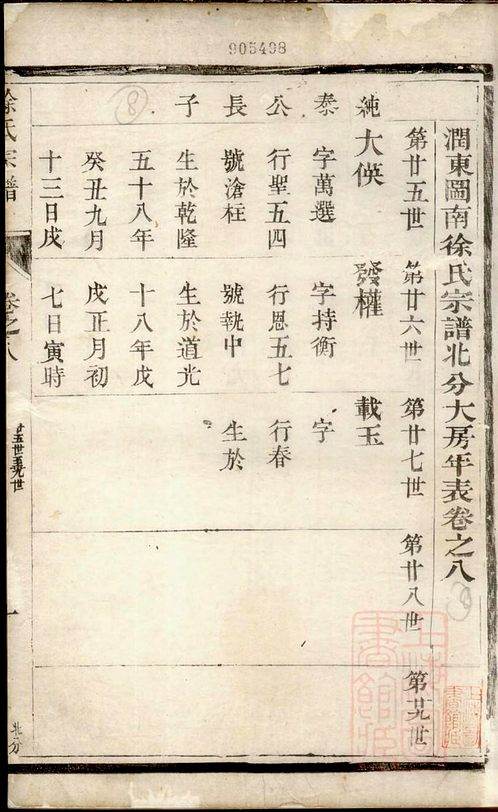 905498
潤東圌南徐氏宗譜北分大房年表卷之八
第廿五世
第廿六世
第廿七世
第廿八世
第廿九世
純
大偀
發權
載玉
泰
字萬選
字持衡
字
公
行聖五四
行恩五七
行春
長
號滄柱
號執中
生於
子
生於乾隆
生於道光
五十八年
十八年戊
癸丑九月
戌正月初
十三日戌
七日寅時
徐氏宗譜
卷之八
廿五世至廿九世
一
北分
8